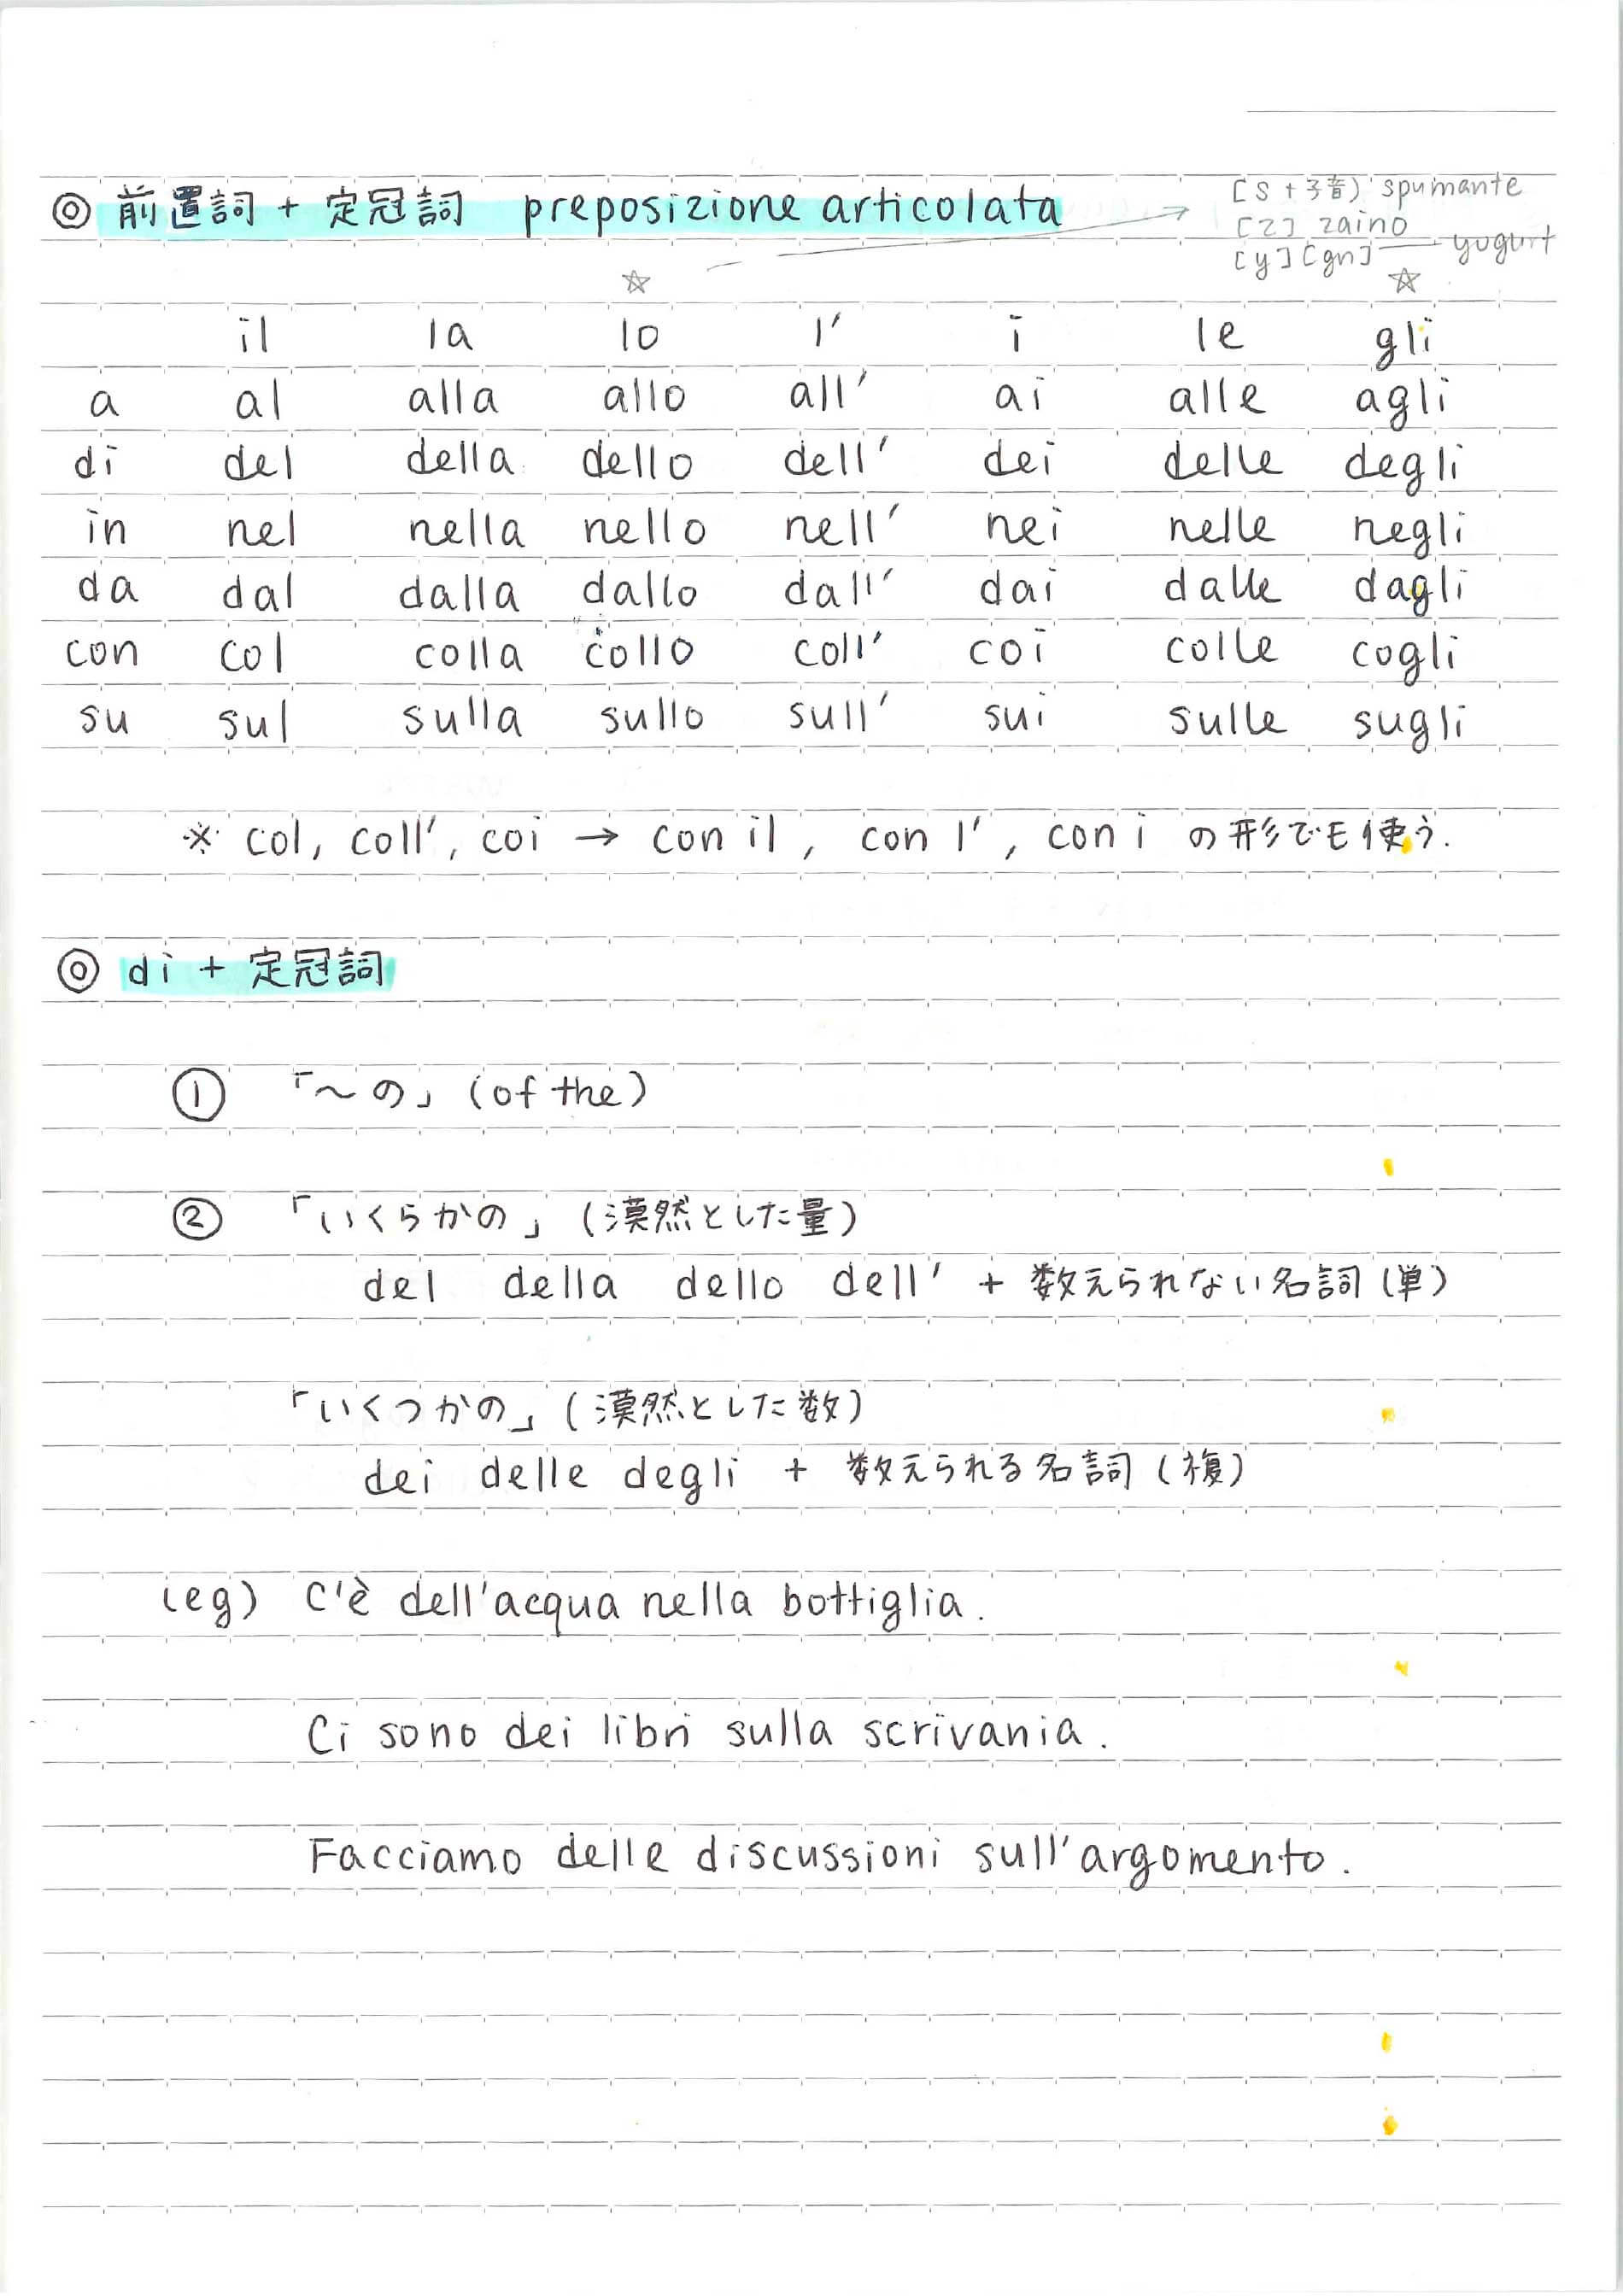 ◎ 前置詞 + 定冠詞 preposizione articolata
[s + 子音) spumante
[z] zaino
[y] [gn] yogurt
☆ ☆
il la lo l' i le gli
a al alla allo all' ai alle agli
di del della dello dell' dei delle degli
in nel nella nello nell' nei nelle negli
da dal dalla dallo dall' dai dalle dagli
con col colla collo coll' coi colle cogli
su sul sulla sullo sull' sui sulle sugli
※ col, coll', coi → con il, con l', con i の形でも使う.
◎ di + 定冠詞
① 「〜の」(of the)
② 「いくらかの」(漠然とした量)
del della dello dell' + 数えられない名詞(単)
「いくつかの」(漠然とした数)
dei delle degli + 数えられる名詞(複)
(eg) C'è dell'acqua nella bottiglia.
Ci sono dei libri sulla scrivania.
Facciamo delle discussioni sull'argomento.